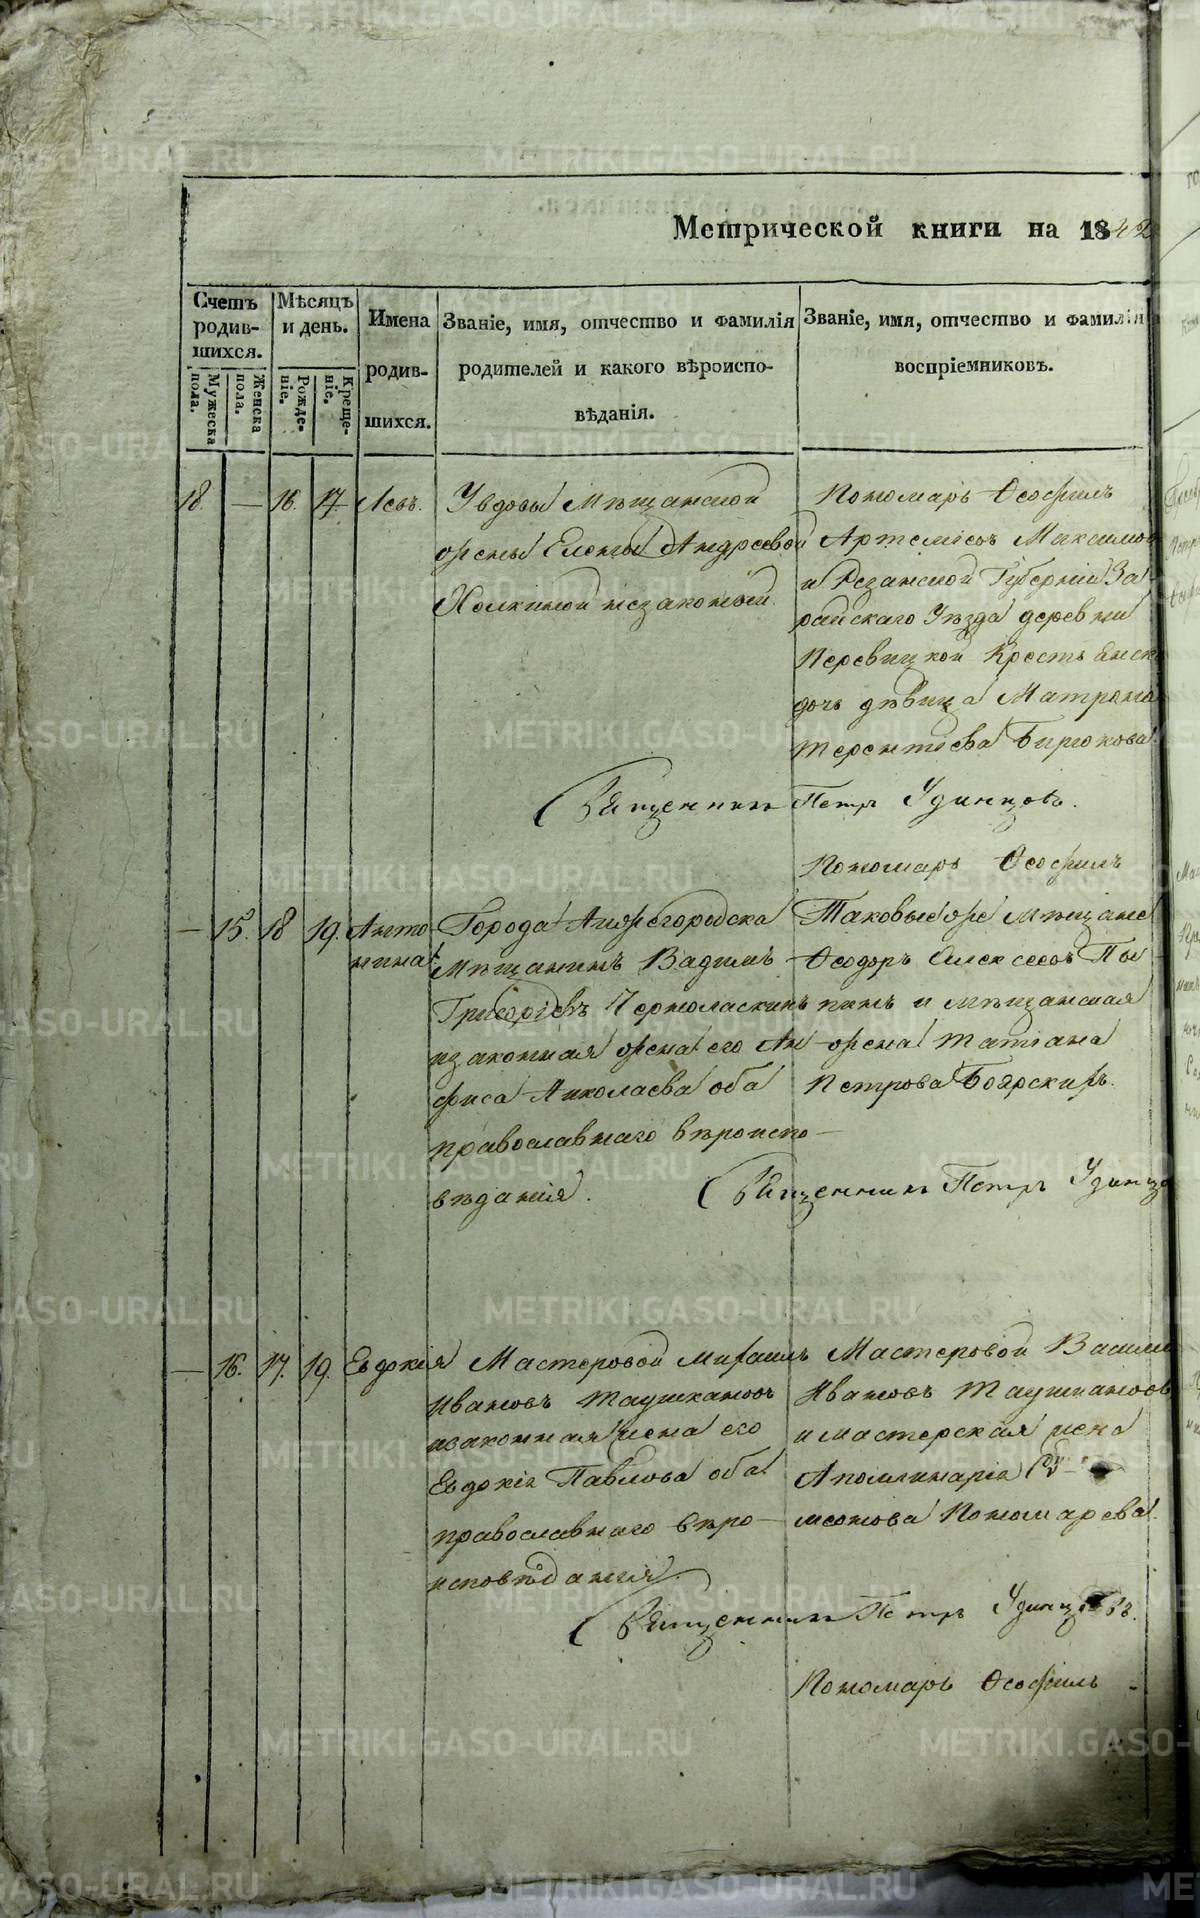 Метрической книги на 1842
Счетъ родив-шихся.
Мужеска пола.
Женска пола.
Мѣсяцъ и день.
Рожде-ніе.
Креще-ніе.
Имена
родив-
шихся.
Званіе, имя, отчество и фамилія
родителей и какого вѣроиспо-
вѣданія.
Званіе, имя, отчество и фамилія
воспріемниковъ.
18. — 16. 17. Левъ.
У вдовы Мѣщанской
жены Елены Андреевой
Холкиной незаконный
Пономарь Ѳеофилъ
Артемьевъ Максимов
и Резанской Губерніи За
райскаго Уѣзда деревни
Перевицкой Крестьянск
дочь дѣвица Матрона
Терентіева Бирюкова.
Священникъ Петръ Удинцовъ.
Пономарь Ѳеофилъ
— 15. 18 19. Анто-
нина
Города
Мѣщанинъ Вадимъ
Григоріевъ Черноласкинъ
изаконная жена его Ан
фиса Николаева оба
православнаго вѣроиспо—
вѣданія.
Таковыеже Мѣщане
Ѳеодоръ Алексеевъ
и мѣщанская
жена Татіана
Петрова Боярскихъ.
Священникъ Петръ Удинцо
— 16. 17. 19. Евдокія
Мастеровой Михаилъ
Ивановъ Таушкановъ
изаконная жена его
Евдокія Павлова оба
православнаго вѣро—
исповѣданія.
Мастеровой Васили
Ивановъ Таушкановъ
и мастерская жена
Аполлинарія
Пономарева.
Священникъ Петръ Удинцовъ.
Пономарь Ѳеофилъ
METRIKI.GASO-URAL.RU